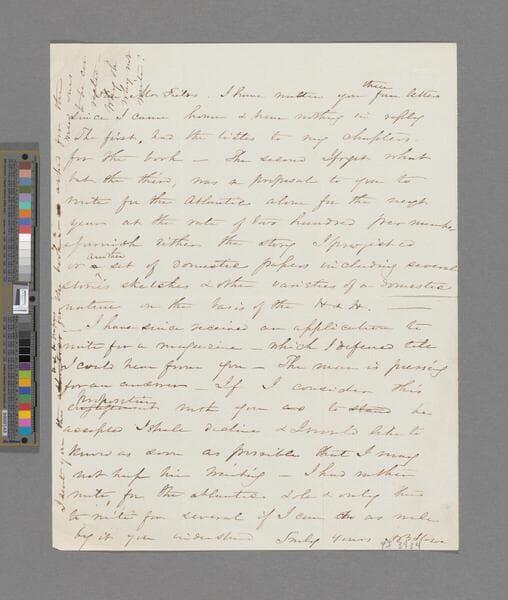 Mr Fields. I have written you three letters
since I came home & have nothing in reply
The first, had the titles to my chapters
for the book — The second I forget what
but the third, was a proposal to you to
write for the Atlantic alone for the next
year at the rate of two hundred per number
& furnish either the story I projected
or another set of domestic papers including several
stories sketches & other varieties of a domestic
nature on the basis of the H & H. —
— I have since received an application to
write for a magazine — which I defered till
I could hear from you — The man is pressing
for an answer — If I consider this
proposition with you as to be
accepted I shall decline & I would like to
know as soon as possible that I may
not keep him waiting — I had rather
write for the Atlantic solely & only than
to write for several if I can do as well
by it you understand Truly Yours HB Stowe
I sent you the
asked for the